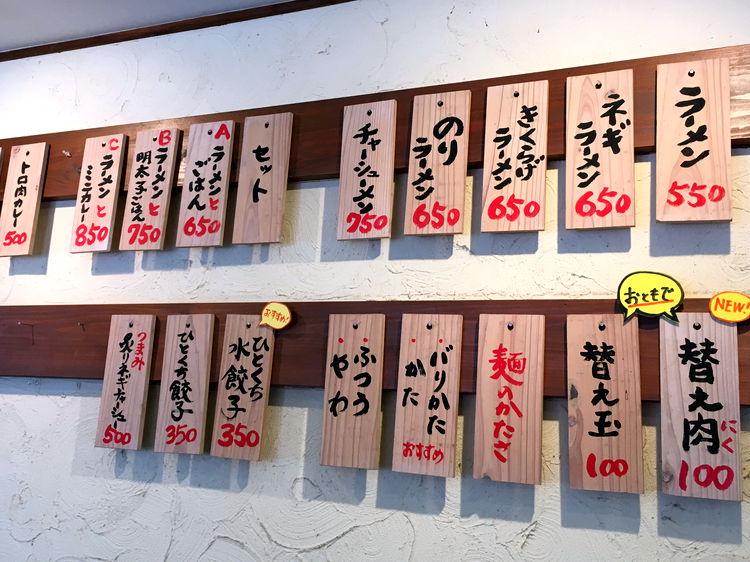 ラーメン
550
ネギ
ラーメン
650
きくらげ
ラーメン
650
のり
ラーメン
650
チャーシューメン
750
セット
A
ラーメンと
ごはん
650
B
ラーメンと
明太子ごはん
750
C
ラーメンと
ミニカレー
850
トロ肉カレー
500
NEW!
替え肉
にく
100
おともで
替え玉
100
麺のかたさ
・バリかた
・かた
おすすめ
・ふつう
・やわ
おすすめ!
ひとくち
水餃子
350
ひとくち餃子
350
つまみ
炙りネギチャーシュー
500